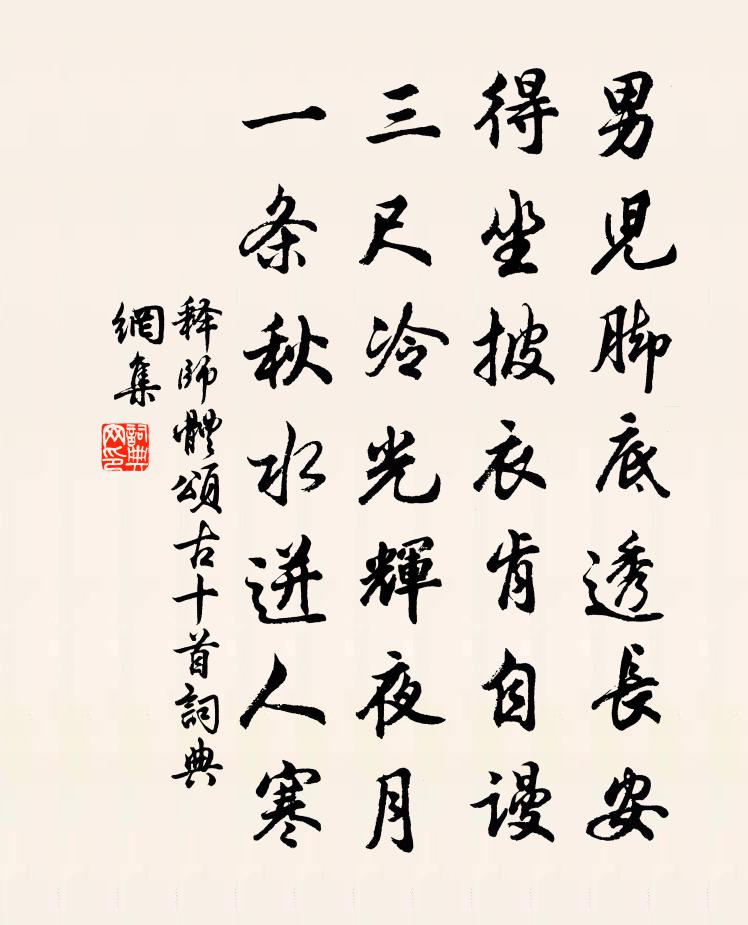 男兒脚底透長安
得坐披衣肯自謾
三尺冷光輝夜月
一条秋水迸人寒
释師體頌古十首詞典
網集
詞典
网印